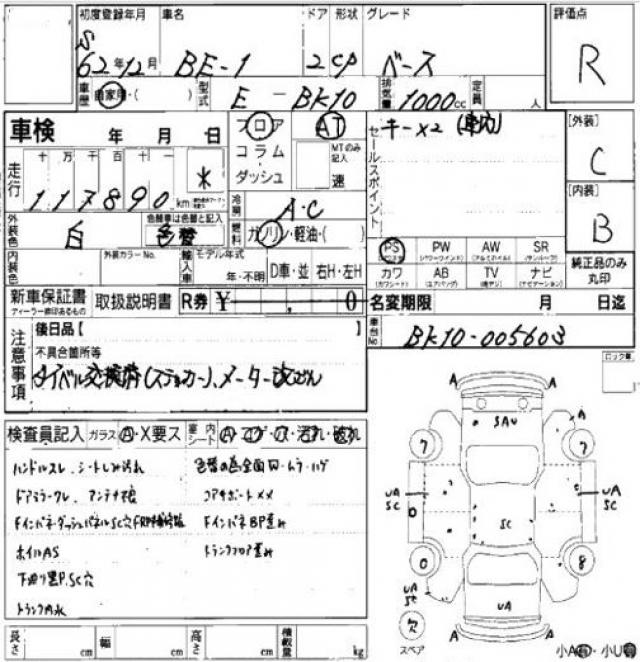 初度登録年月 車名 ドア 形状 グレード 評価点
S
62年12月 BE-1 2 CP ベース R
車歴 自家用・( ) 型式 E-BK10 排気量 1000cc 定員 人
車検 年 月 日 フロア AT セールスポイント キー×2 [外装]
コラム MTのみ記入 C
ダッシュ 速
走行 十万千百十一
117890 km * [内装]
冷房 A・C B
外装色 白 色替車は色替と記入 色替 燃料 ガソリン・軽油・( )
PS PW AW SR
(パワーウインド) (アルミホイル) (サンルーフ)
内装色 外装カラーNo. 輸入車 モデル年式 年・不明 D車・並 右H・左H
カワ AB TV ナビ 純正品のみ丸印
(カワシート) (エアバッグ) (ナビゲーション)
新車保証書 取扱説明書 R券 ¥ , 0 名変期限 月 日迄
ディーラー捺印あるもの
注意事項 後日品【 】 車台No. BK10-005603
不具合箇所等
タイベル交換済(ステッカー)、メーター改ざん
ロック車
検査員記入 ガラス A・X要ス 室内シート A・コゲ・穴・汚れ・破れ
ハンドルスレ、シートしみ汚れ
ドアミラークレ、アンテナ
ホイルAS トランクフロア歪み
コアサポートXX
FインパネBP歪み
A A
SAU
7 7
UA
SC
UA
SC
SC
0
0 8
UA
SC UA
欠
スペア
A A
長さ cm 幅 cm 高さ cm 積載量 kg